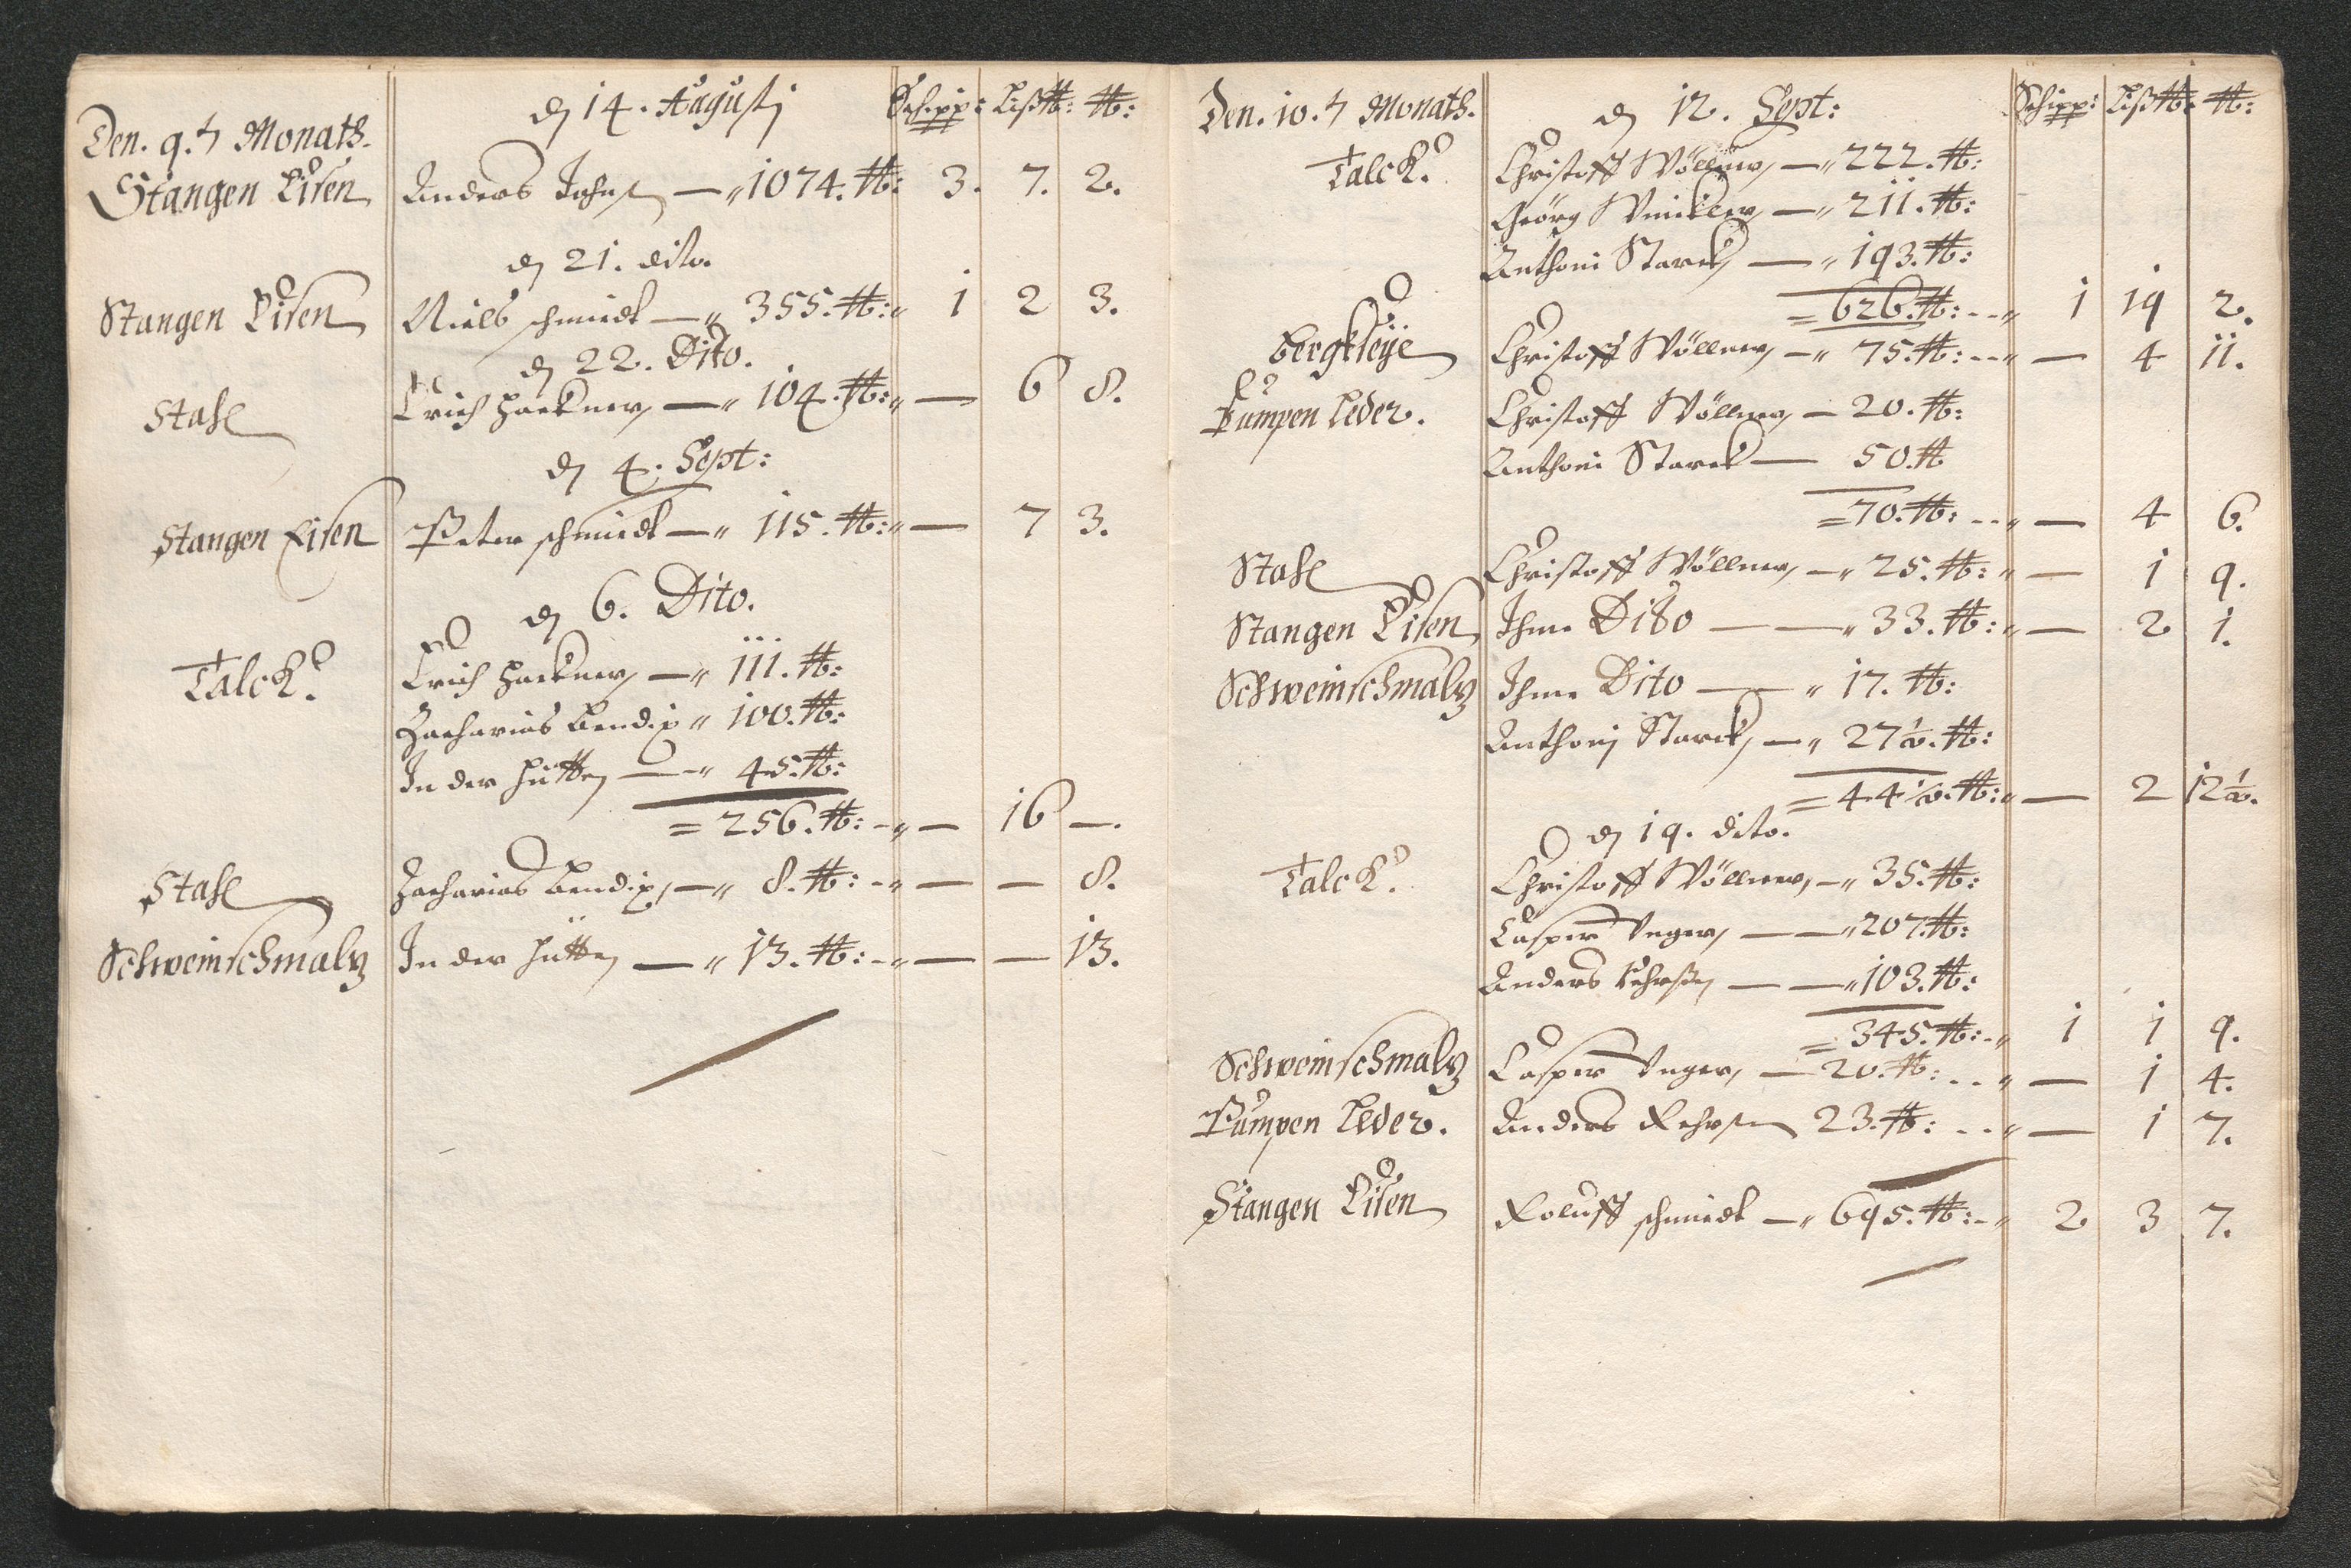 Den. 9.t Monath. den 14. Augustj Schipp: Liß℔: ℔:
Stangen Eisen Anders Johns — 1074. ℔: 3. 7. 2.
den 21. dito.
Stangen Eisen Niels schmiedt — 355. ℔: 1 2 3.
den 22. Dito.
Stahl Erich Hackner — 104. ℔: — 6 8.
den 4. Sept:
Stangen Eisen Peter schmiedt — 115. ℔: — 7 3.
den 6. Dito.
Talck. Erich Hackner — 111. ℔:
Zacharias Bendix 100. ℔:
In der Hütten — 45. ℔:
= 256. ℔: — 16 —.
Stahl Zacharias Bendix, — 8. ℔: — — 8.
Schweinschmaltz In der Hütten — 13. ℔: — — 13.
Den. 10.t Monath. den 12. Sept: Schipp: Liß℔: ℔:
Talck. Christoff Wöllner — 222. ℔:
Geörg Winckler — 211. ℔:
Anthoni Starck — 193. ℔:
= 626. ℔: 1 19 2.
Bergkseÿe Christoff Wöllner, — 75. ℔: — 4 11.
Pumpen Leder. Christoff Wöllner, — 20. ℔:
Anthoni Starck — 50. ℔
= 70. ℔: — 4 6.
Stahl Christoff Wöllner, — 25. ℔: — 1 9.
Stangen Eisen Ihme Dito — 33. ℔: — 2 1.
Schweinschmaltz Ihme Dito — 17. ℔:
Anthonj Starck, — 27 1/2. ℔:
= 44 1/2. ℔: — 2 12 1/2.
den 19. dito.
Talck. Christoff Wöllner, — 35. ℔:
Casper Unger, — 207. ℔:
Anders — 103. ℔:
= 345. ℔: 1 1 9.
Schweinschmaltz Casper Unger, — 20. ℔: — 1 4.
Pumpen Leder. Anders 23. ℔: — 1 7.
Stangen Eisen Roluff schmiedt — 695. ℔: 2 3 7.